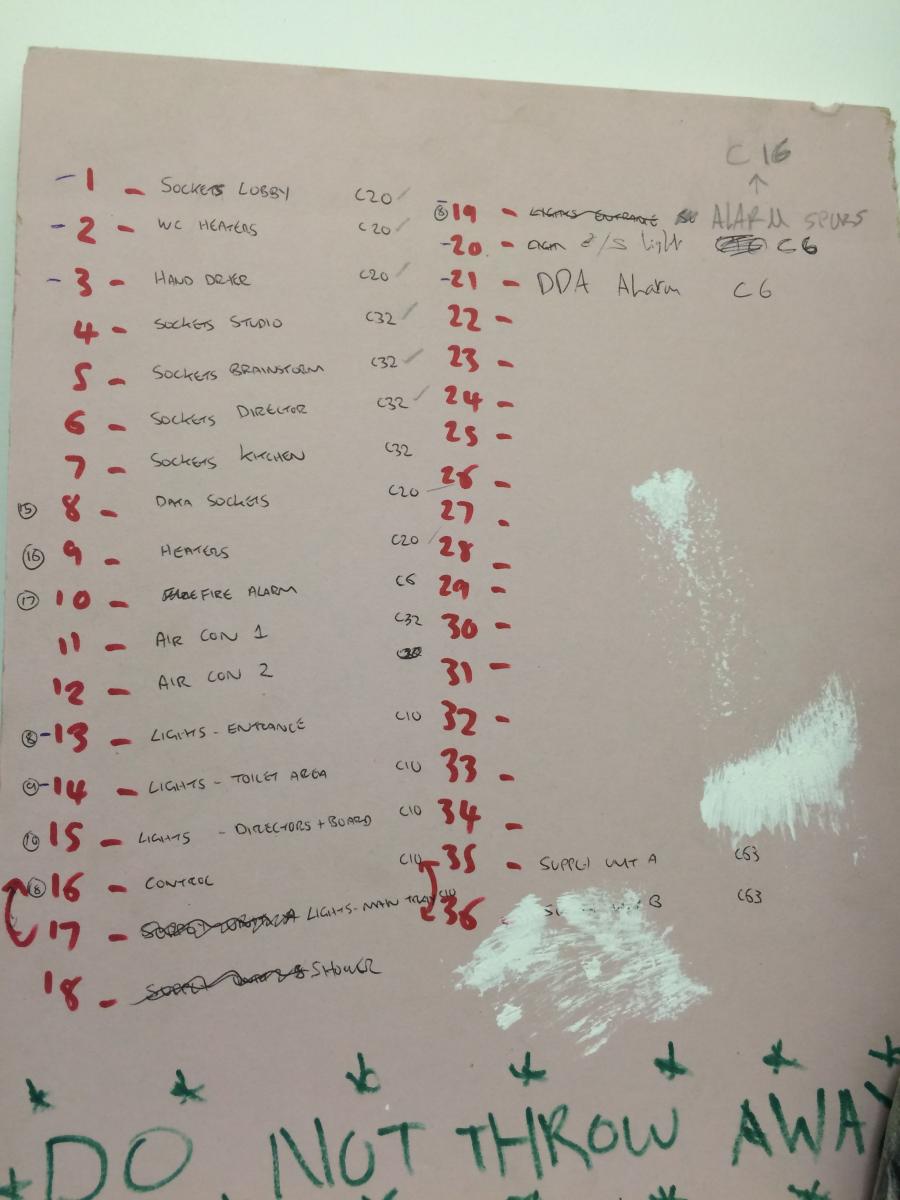 - 1 - SOCKETS LOBBY C20
- 2 - WC HEATERS C20
- 3 - HAND DRYER C20
4 - SOCKETS STUDIO C32
5 - SOCKETS BRAINSTORM C32
6 - SOCKETS DIRECTOR C32
7 - SOCKETS KITCHEN C32
15 8 - DATA SOCKETS C20
16 9 - HEATERS C20
17 10 - FIRE ALARM C6
11 - AIR CON 1 C32
12 - AIR CON 2
8 - 13 - LIGHTS - ENTRANCE C10
9 - 14 - LIGHTS - TOILET AREA C10
10 15 - LIGHTS - DIRECTORS + BOARD C10
8 16 - CONTROL C10
17 - LIGHTS - MAIN
18 - SHOWER
C 16
19 - LIGHTS ENTRANCE ALARM SPURS
- 20 - light C6
- 21 - DDA Alarm C6
22 -
23 -
24 -
25 -
26 -
27 -
28 -
29 -
30 -
31 -
32 -
33 -
34 -
35 - SUPPLY UNIT A C63
36 - B C63
DO NOT THROW AWAY